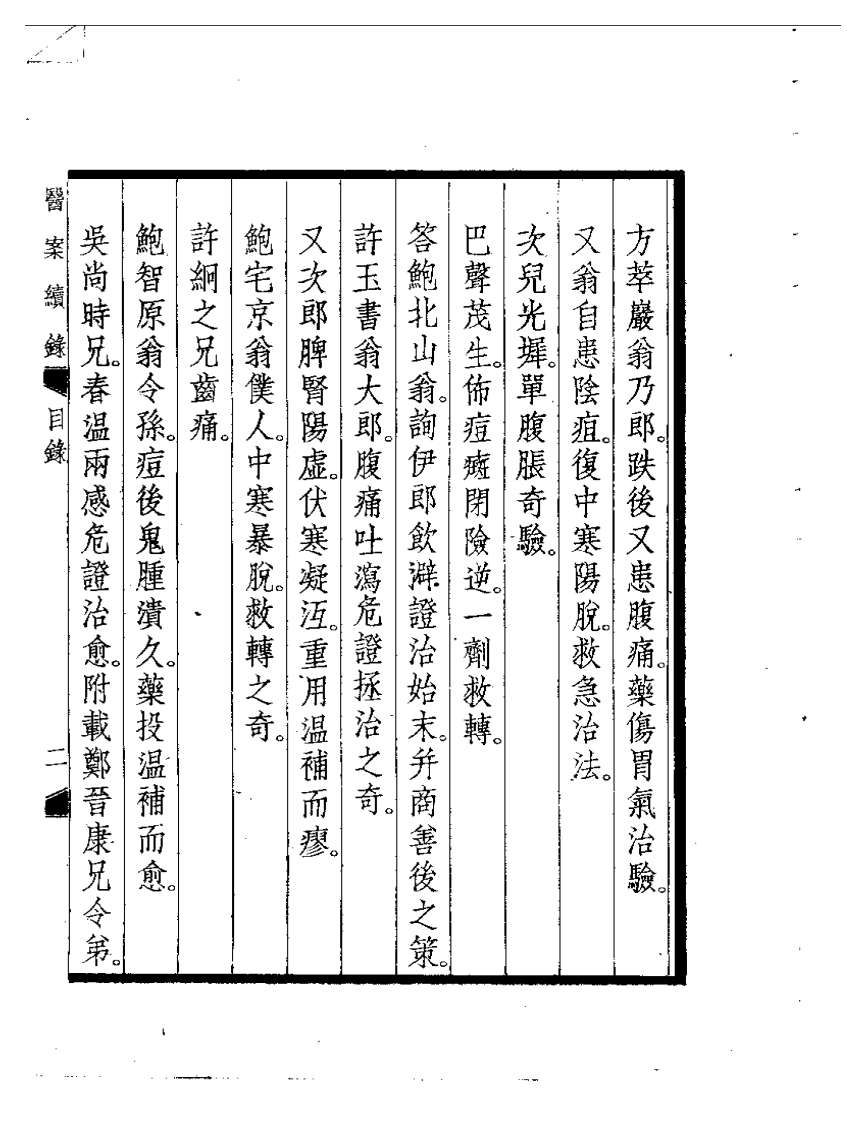 方萃巖翁乃郎。跌後又患腹痛。藥傷胃氣治驗。
又翁自患陰疽。復中寒陽脫。救急治法。
次兒光墀。單腹脹奇驗。
巴聲茂生。佈痘癍閉險逆。一劑救轉。
答鮑北山翁。詢伊郎飲澼證治始末。并商善後之策。
許玉書翁大郎。腹痛吐瀉危證拯治之奇。
又次郎脾腎陽虛。伏寒凝沍。重用温補而瘳。
鮑宅京翁僕人。中寒暴脫。救轉之奇。
許絅之兄齒痛。
鮑智原翁令孫。痘後鬼腫潰久。藥投温補而愈。
吳尚時兄。春温兩感危證治愈。附載鄭晉康兄令弟。
醫案續錄 目錄 二